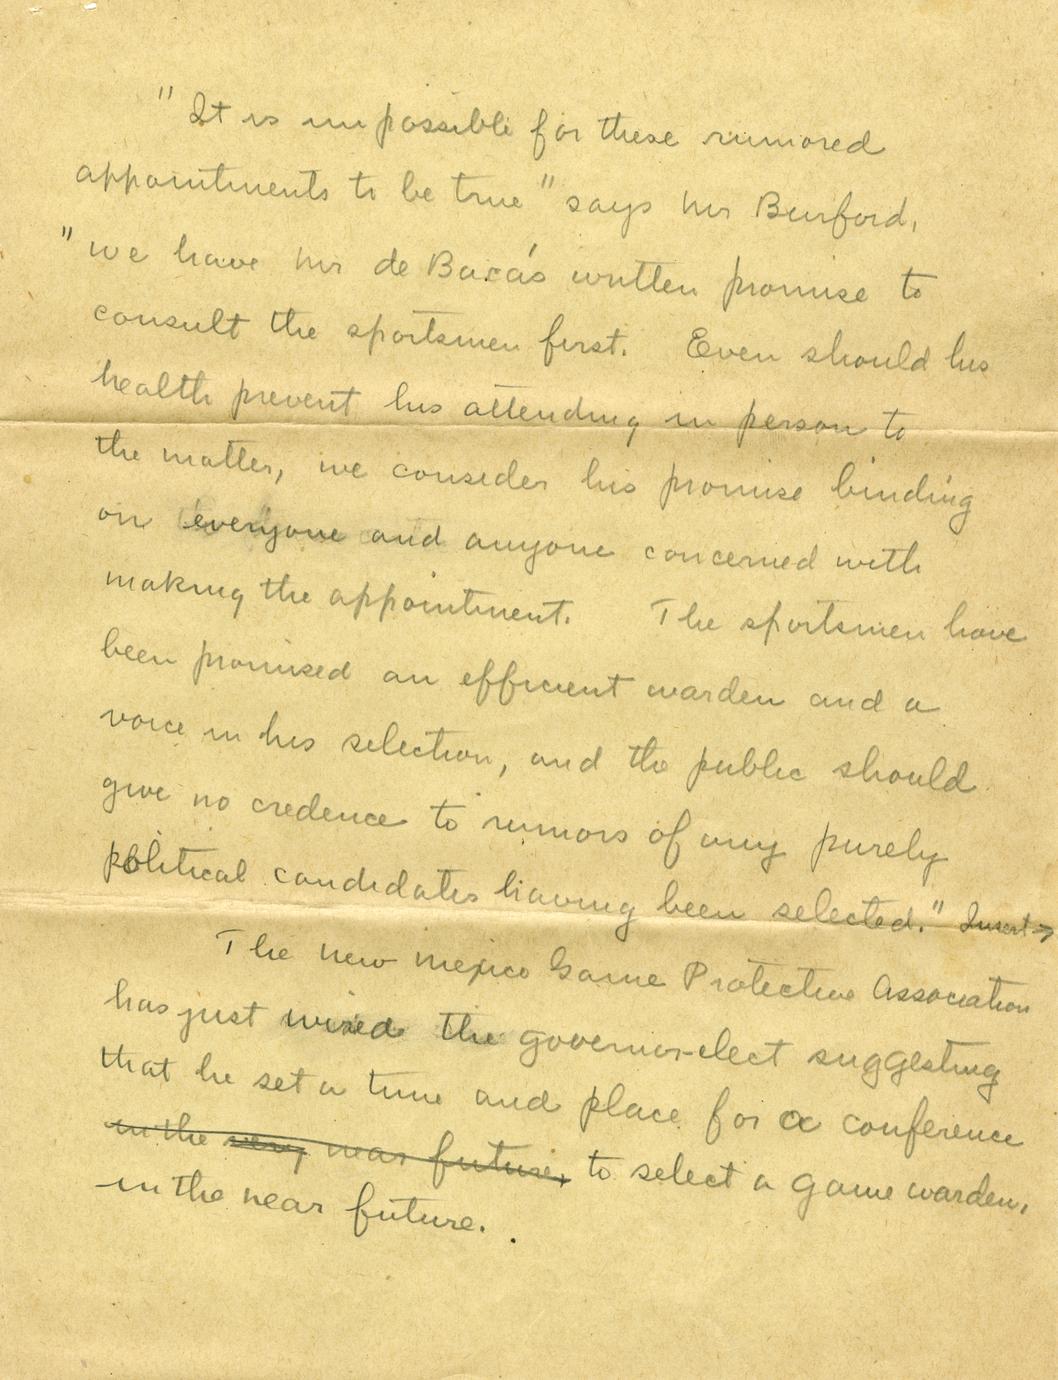 "It is impossible for these rumored
appointments to be true" says Mr Burford,
"we have Mr de Baca's written promise to
consult the sportsmen first. Even should his
health prevent his attending in person to
the matter, we consider his promise binding
on everyone and anyone concerned with
making the appointment. The sportsmen have
been promised an efficient warden and a
voice in his selection, and the public should
give no credence to rumors of any purely
political candidates having been selected." Insert →
The New Mexico Game Protective Association
has just wired the governor-elect suggesting
that he set a time and place for a conference
in the very near future, to select a game warden.
in the near future.